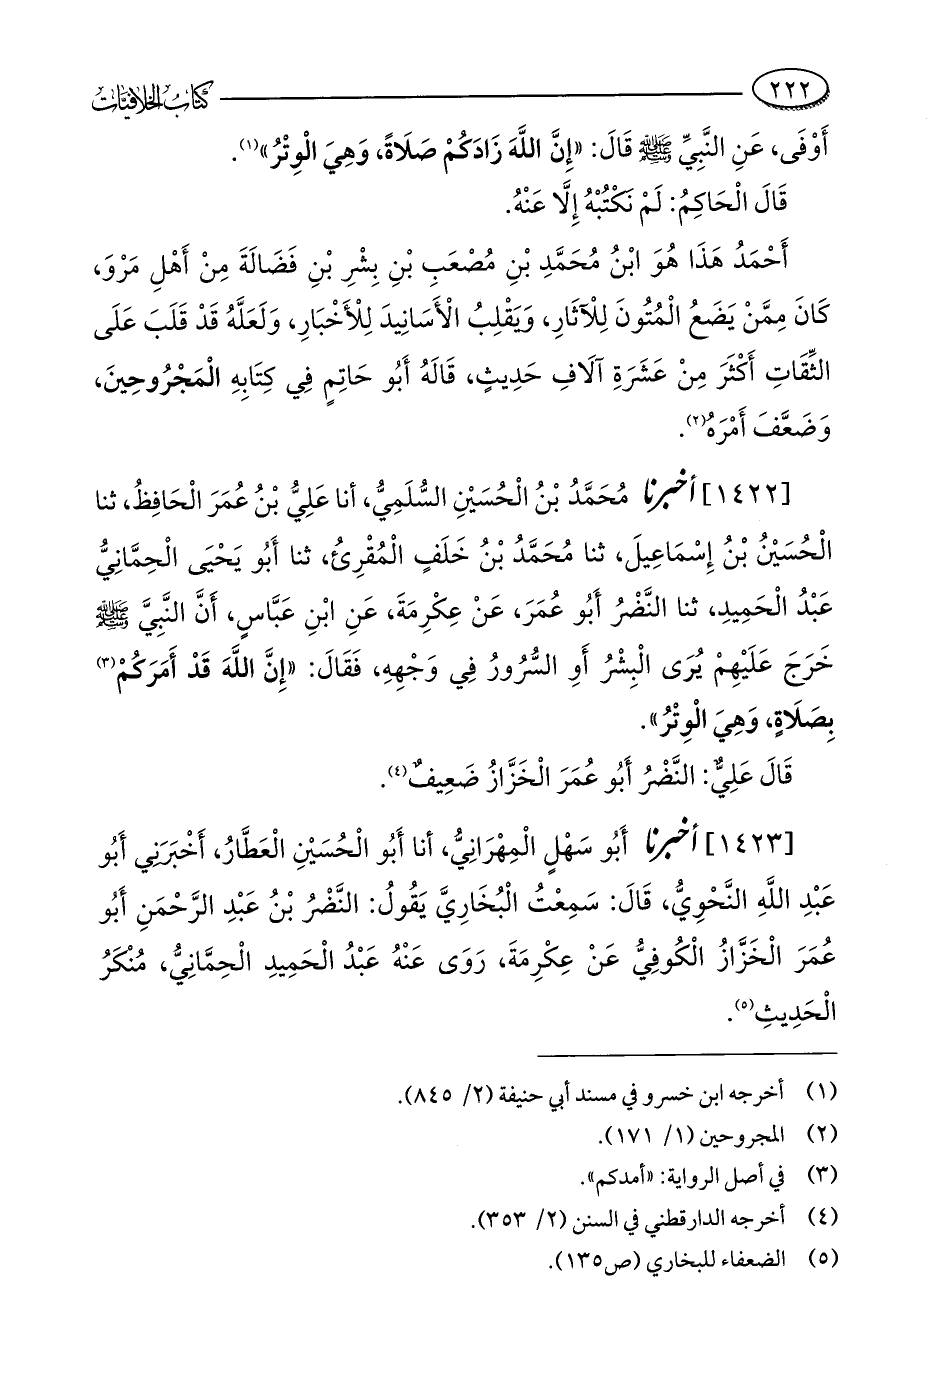 ٢٢٢ كتاب الخلافيات
أَوْفَى، عَنِ النَّبِيِّ ﷺ قَالَ: «إِنَّ اللَّهَ زَادَكُمْ صَلَاةً، وَهِيَ الْوِتْرُ»(١).
قَالَ الْحَاكِمُ: لَمْ نَكْتُبْهُ إِلَّا عَنْهُ.
أَحْمَدُ هَذَا هُوَ ابْنُ مُحَمَّدِ بْنِ مُصْعَبِ بْنِ بِشْرِ بْنِ فَضَالَةَ مِنْ أَهْلِ مَرْوَ،
كَانَ مِمَّنْ يَضَعُ الْمُتُونَ لِلْآثَارِ، وَيَقْلِبُ الْأَسَانِيدَ لِلْأَخْبَارِ، وَلَعَلَّهُ قَدْ قَلَبَ عَلَى
الثِّقَاتِ أَكْثَرَ مِنْ عَشَرَةِ آلَافِ حَدِيثٍ، قَالَهُ أَبُو حَاتِمٍ فِي كِتَابِهِ الْمَجْرُوحِينَ،
وَضَعَّفَ أَمْرَهُ(٢).
[١٤٢٢] أخبرنا مُحَمَّدُ بْنُ الْحُسَيْنِ السُّلَمِيُّ، أنا عَلِيُّ بْنُ عُمَرَ الْحَافِظُ، ثنا
الْحُسَيْنُ بْنُ إِسْمَاعِيلَ، ثنا مُحَمَّدُ بْنُ خَلَفٍ الْمُقْرِئُ، ثنا أَبُو يَحْيَى الْحِمَّانِيُّ
عَبْدُ الْحَمِيدِ، ثنا النَّضْرُ أَبُو عُمَرَ، عَنْ عِكْرِمَةَ، عَنِ ابْنِ عَبَّاسٍ، أَنَّ النَّبِيَّ ﷺ
خَرَجَ عَلَيْهِمْ يُرَى الْبِشْرُ أَوِ السُّرُورُ فِي وَجْهِهِ، فَقَالَ: «إِنَّ اللَّهَ قَدْ أَمَرَكُمْ(٣)
بِصَلَاةٍ، وَهِيَ الْوِتْرُ».
قَالَ عَلِيٌّ: النَّضْرُ أَبُو عُمَرَ الْخَزَّازُ ضَعِيفٌ(٤).
[١٤٢٣] أخبرنا أَبُو سَهْلٍ الْمِهْرَانِيُّ، أنا أَبُو الْحُسَيْنِ الْعَطَّارُ، أَخْبَرَنِي أَبُو
عَبْدِ اللَّهِ النَّحْوِيُّ، قَالَ: سَمِعْتُ الْبُخَارِيَّ يَقُولُ: النَّضْرُ بْنُ عَبْدِ الرَّحْمَنِ أَبُو
عُمَرَ الْخَزَّازُ الْكُوفِيُّ عَنْ عِكْرِمَةَ، رَوَى عَنْهُ عَبْدُ الْحَمِيدِ الْحِمَّانِيُّ، مُنْكَرُ
الْحَدِيثِ(٥).
(١) أخرجه ابن خسرو في مسند أبي حنيفة (٢/ ٨٤٥).
(٢) المجروحين (١/ ١٧١).
(٣) في أصل الرواية: «أمدكم».
(٤) أخرجه الدارقطني في السنن (٢/ ٣٥٣).
(٥) الضعفاء للبخاري (ص١٣٥).